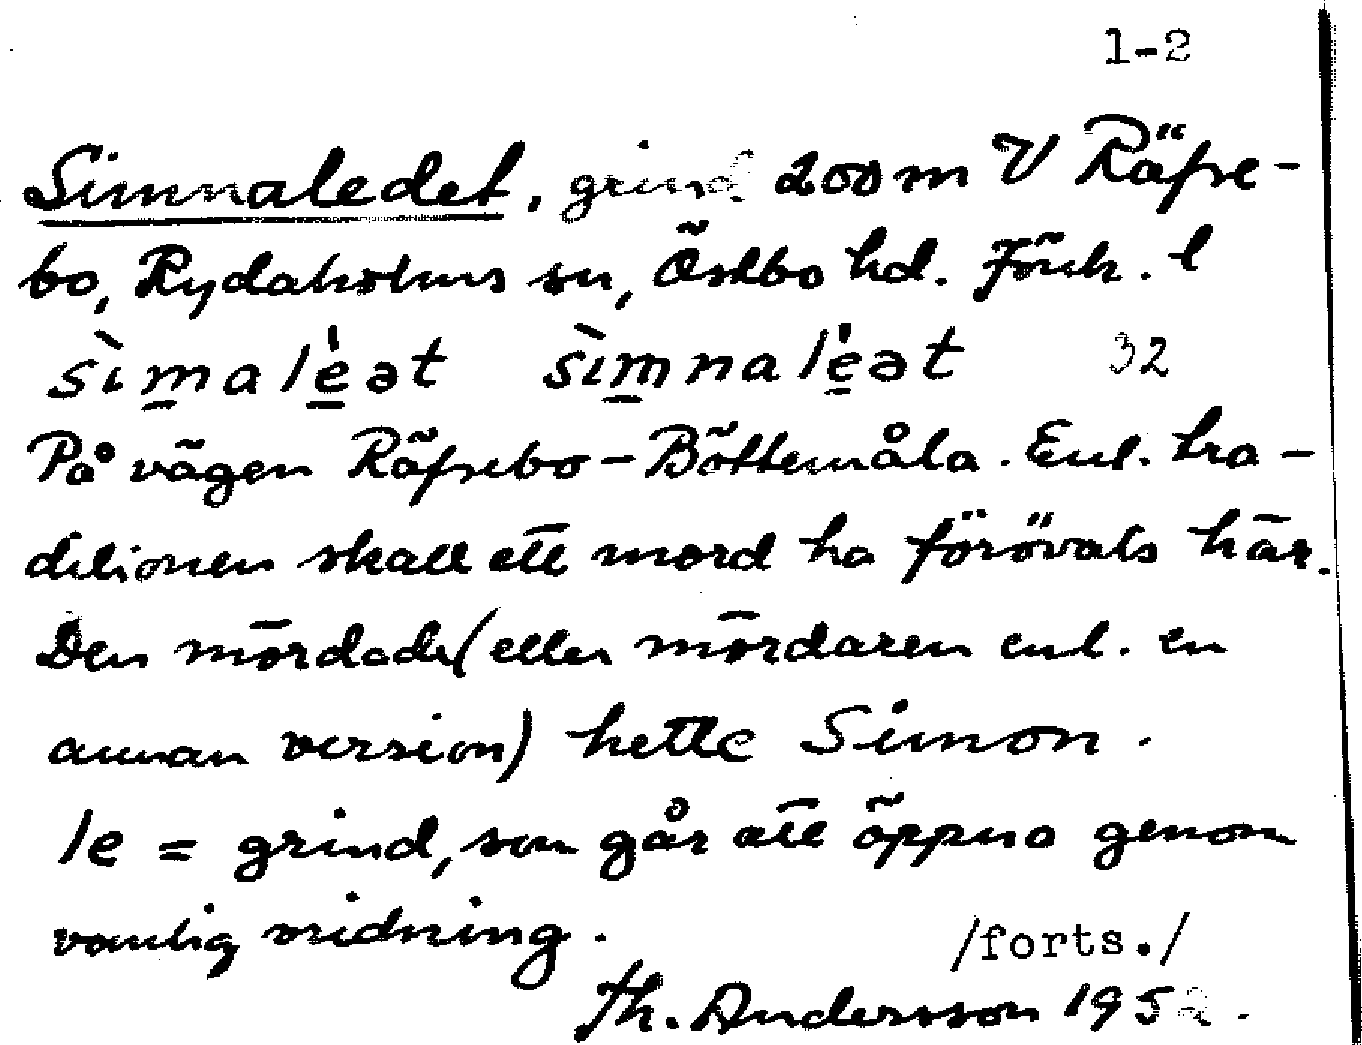 1-2
Simnaledet, grind 200 m V Räfse-
bo, Rydaholms sn, Östbo hd. Jönk. l
sìmalé̱ət sìmnalé̱ət 32
På vägen Räfsebo - Böttemåla. Enl. tra-
ditionen skall ett mord ha förövats här.
Den mördade (eller mördaren enl. en
annan version) hette Simon.
le = grind, som går att öppna genom
vanlig vridning.
/forts./
Th. Andersson 1952.